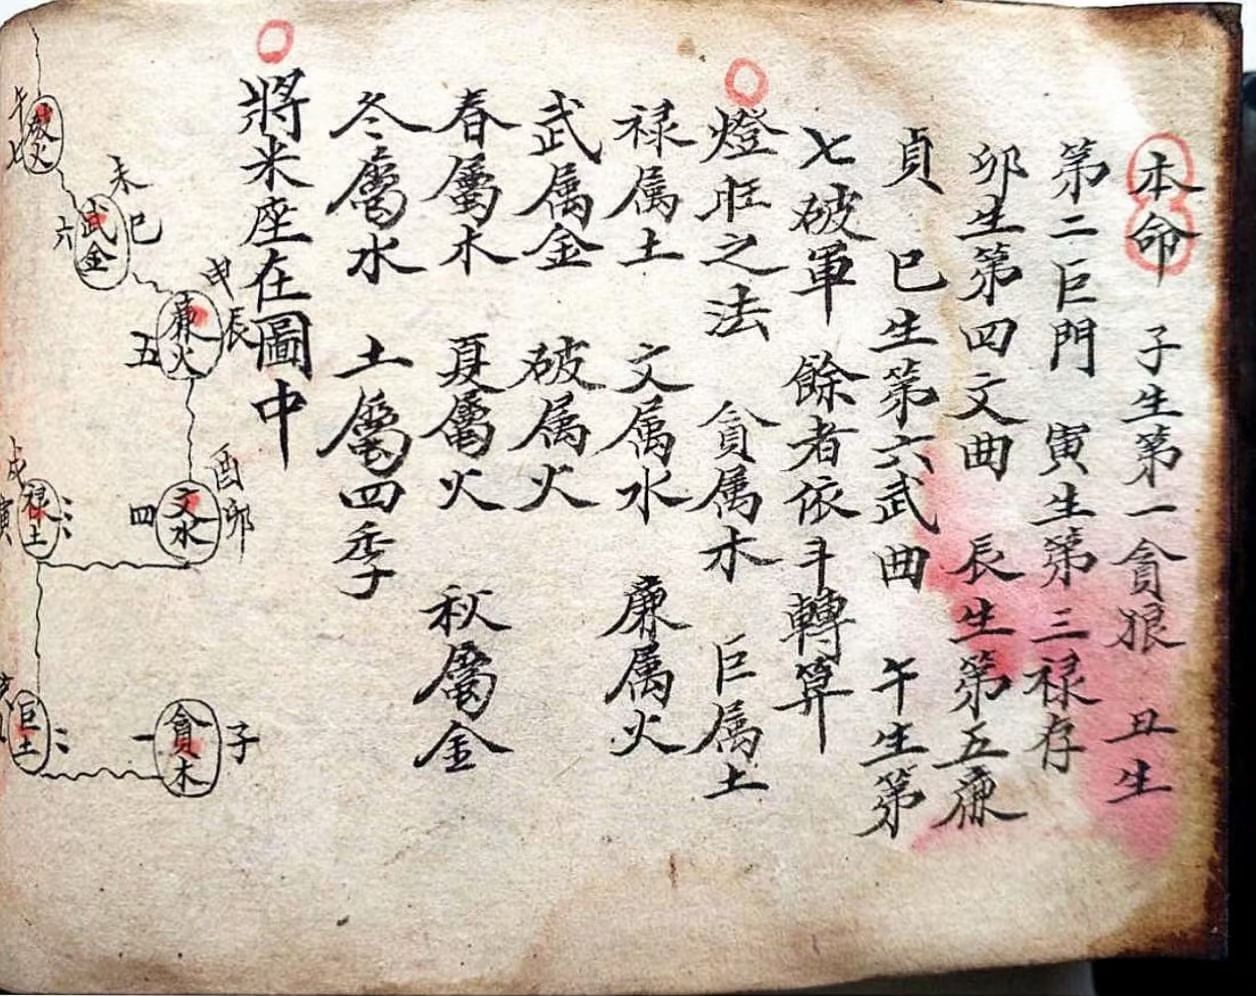 本命 子生第一貪狼 丑生
第二巨門 寅生第三禄存
卯生第四文曲 辰生第五廉
貞 巳生第六武曲 午生第
七破軍 餘者依斗轉算
燈旺之法 貪属木 巨属土
禄属土 文属水 廉属火
武属金 破属火
春屬木 夏屬火 秋屬金
冬屬水 土屬四季
將米座在圖中
午 破火 七
未 巳 武金 六
申 辰 廉火 五
酉 卯 文水 四
戌 寅 禄土 三
巨土 二
子 貪木 一